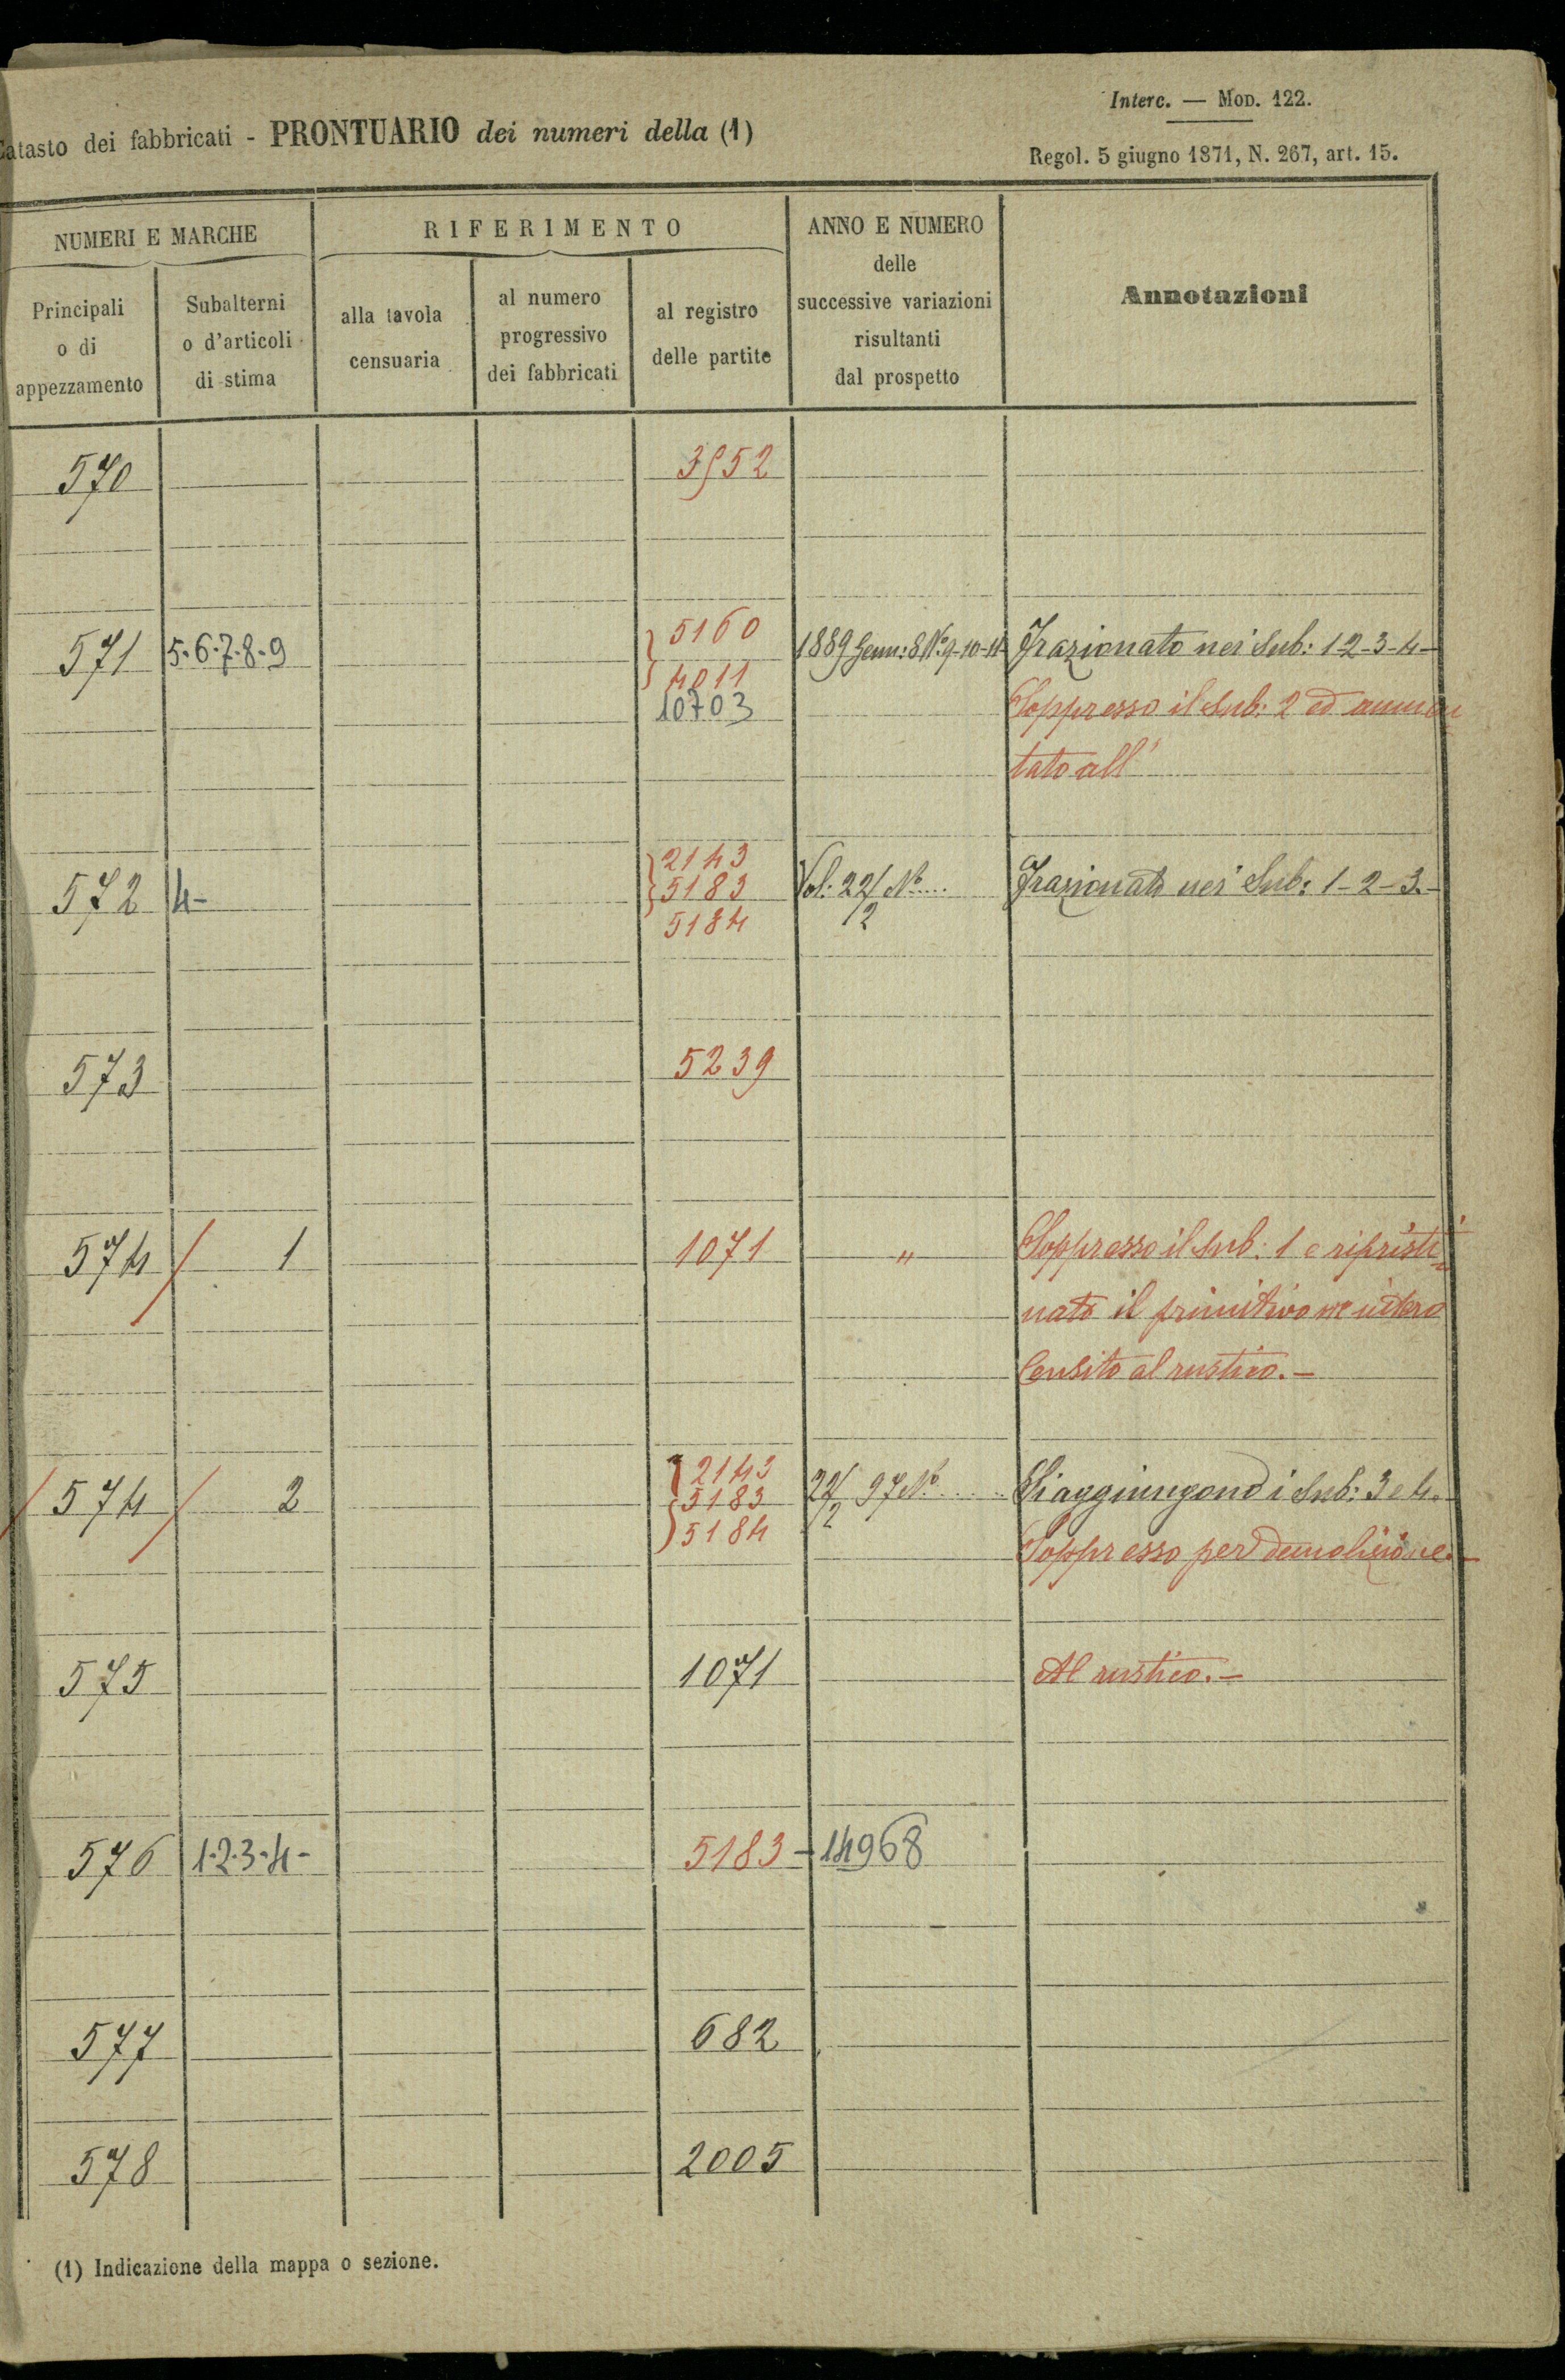 Interc. — Mod. 122.
Catasto dei fabbricati - PRONTUARIO dei numeri della (1)
Regol. 5 giugno 1871, N. 267, art. 15.
NUMERI E MARCHE
RIFERIMENTO
ANNO E NUMERO
delle
successive variazioni
risultanti
dal prospetto
Annotazioni
Principali
o di
appezzamento
Subalterni
o d'articoli
di stima
alla tavola
censuaria
al numero
progressivo
dei fabbricati
al registro
delle partite
570 3952
571 5-6-7-8-9 5160 1889 Genn: 8 N° 9-10-11 Frazionato nei Sub: 1-2-3-4-
4011
10703 Soppresso il Sub: 2 ed aumen
tato all'
2143
572 4- 5183 Vol: 22/2 N°.... Frazionato nei Sub: 1-2-3-
5184
573 5239
574 / 1 1071 " Soppresso il Sub: 1 e ripristi=
nato il primitivo n° intero
Censito al rustico.-
2143
/ 574 / 2 5183 22/2 97 N°...... Si aggiungono i Sub: 3 e 4.-
5184 Soppresso per demolizione.-
575 1071 Al rustico.-
576 1-2-3-4- 5183 - 14968
577 682
578 2005
(1) Indicazione della mappa o sezione.